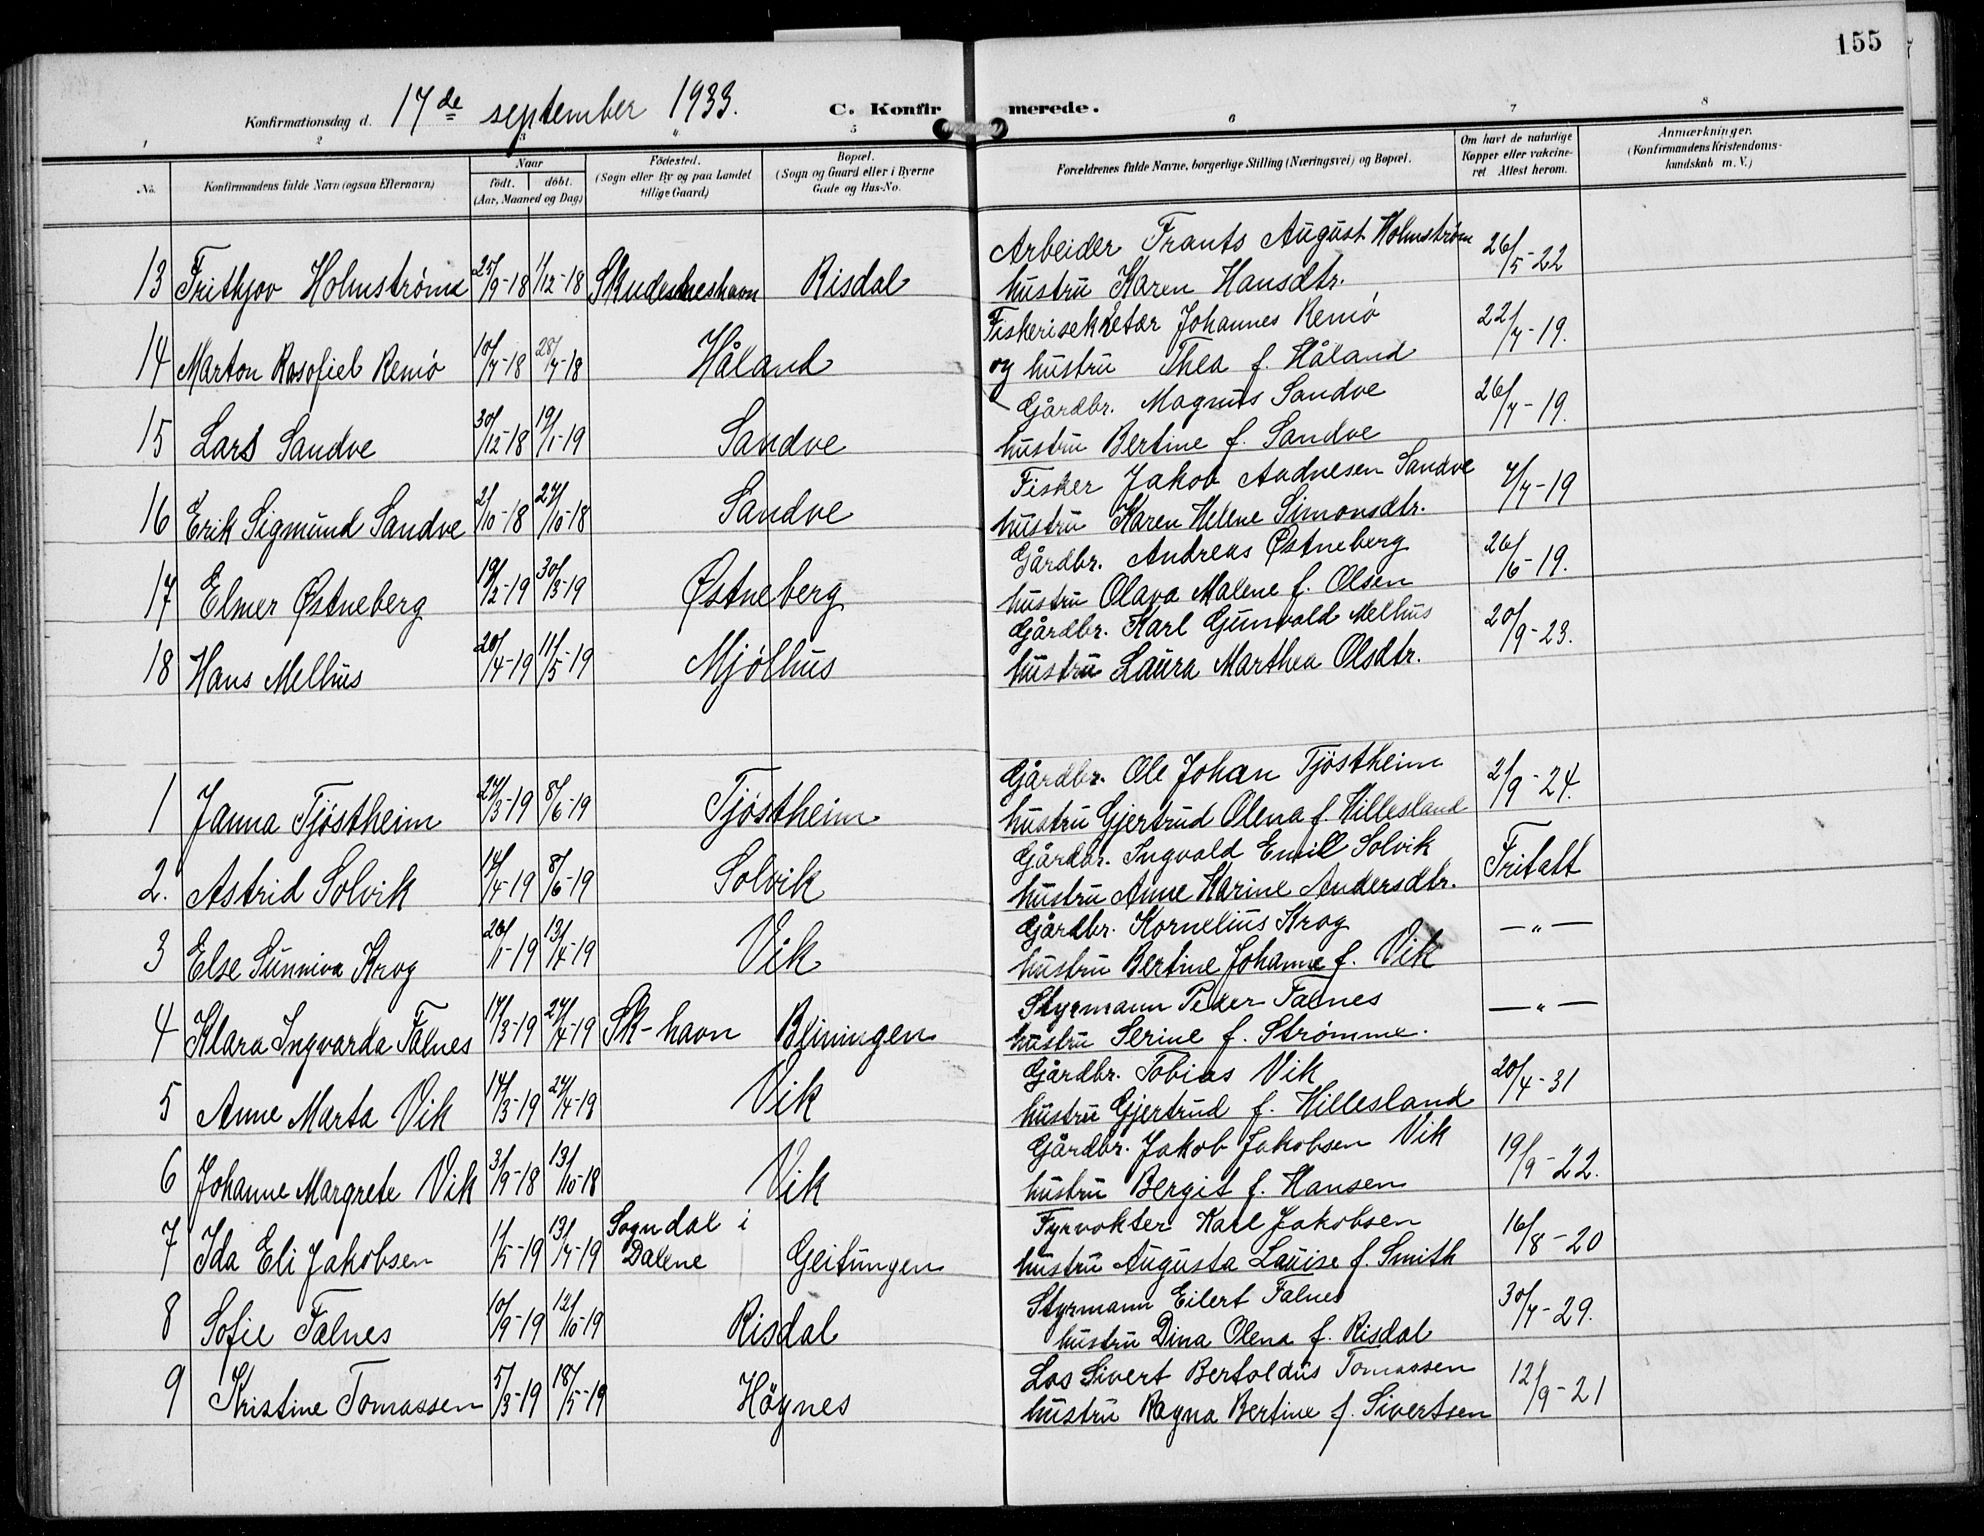 155
Konfirmationsdag d. 17de september 1933. C. Konfirmerede.
1 2 3 4 5 6 7 8
No. Konfirmandens fulde Navn (ogsaa Efternavn) Naar født. døbt. (Aar, Maaned og Dag) Fødested. (Sogn eller By og paa Landet tillige Gaard) Bopæl. (Sogn og Gaard eller i Byerne Gade og Hus-No. Forældrenes fulde Navne, borgerlige Stilling (Næringsvei) og Bopæl. Om havt de naturlige Kopper eller vakcineret Attest herom. Anmærkninger. (Konfirmandens Kristendomskundskab m. V.)
13 Frithjov Holmstrøm 25/9-18 1/12-18 Skudeneshavn Risdal Arbeider Frants August Holmstrøm 26/5-22
hustru Karen Hansdtr.
14 Marton Rasofiel Remø 10/7-18 28/7-18 Håland Fiskerisekretær Johannes Remø 22/7-19.
og hustru Thea f. Håland
15 Lars Sandve 30/12-18 19/1-19 Sandve Gårdbr. Magnus Sandve 26/7-19.
hustru Bertine f. Sandve
16 Erik Sigmund Sandve 2/10-18 27/10-18 Sandve Fisker Jakob Aadnesen Sandve 7/7-19
hustru Karen Helene Simonsdtr.
17 Elmer Østneberg 19/2-19 30/3-19 Østneberg Gårdbr. Andreas Østneberg 26/6-19.
hustru Olava Malene f. Olsen
18 Hans Melhus 20/4-19 11/5-19 Mjølhus Gårdbr. Karl Gunvald Melhus 20/9-23.
hustru Laura Marthea Olsdtr.
1 Janna Tjøstheim 24/3-19 8/6-19 Tjøstheim Gårdbr. Ole Johan Tjøstheim 2/9-24.
hustru Gjertrud Olena f. Hillesland
2. Astrid Solvik 14/4-19 8/6-19 Solvik Gårdbr. Ingvald Emill Solvik Fritatt
hustru Anne Karine Andersdtr.
3 Else Sunniva Krog 20/1-19 13/4-19 Vik Gårdbr. Kornelius Krog —"—
hustru Bertine Johanne f. Vik
4 Klara Ingvarda Falnes 17/3-19 27/4-19 Sk-havn Bliningen Styrmann Peder Falnes —"—
hustru Serine f. Strømme.
5 Anne Marta Vik 14/3-19 27/4-19 Vik Gårdbr. Tobias Vik 20/4-31
hustru Gjertrud f. Hillesland
6 Johanne Margrete Vik 3/9-18 13/10-18 Vik Gårdbr. Jakob Jakobsen Vik 19/9-22.
hustru Bergit f. Hansen
7 Ida Eli Jakobsen 1/5-19 13/7-19 Sogndal i Dalene Geitungen Fyrvokter Karl Jakobsen 16/8-20
hustru Augusta Lauise f. Smith
8 Sofie Falnes 10/9-19 12/10-19 Risdal Styrmann Eilert Falnes 30/7-29.
hustru Dina Olena f. Risdal
9 Kristine Tomassen 5/3-19 18/5-19 Høynes Los Sivert Bertoldus Tomassen 12/9-21
hustru Ragna Bertine f. Sivertsen